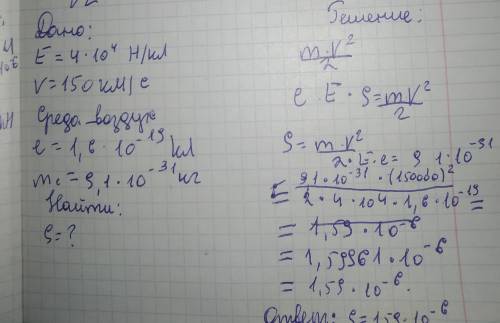 Дано:
E = 4 · 10⁴ Н/кл
V = 150 км/с
Среда воздух
e = 1,6 · 10⁻¹⁹ кл
me = 9,1 · 10⁻³¹ кг
Найти:
S = ?
Решение:
m · V²
2
e · E · S = mV²
2
S = m · V²
2 · E · e = 9 1 · 10⁻³¹
= 91 · 10⁻³¹ · (150000)²
2 · 4 · 104 · 1,6 · 10⁻¹⁹ =
= 1,59 · 10⁻⁶
= 1,59961 · 10⁻⁶
= 1,59 · 10⁻⁶.
Ответ: S = 159 · 10⁻⁶